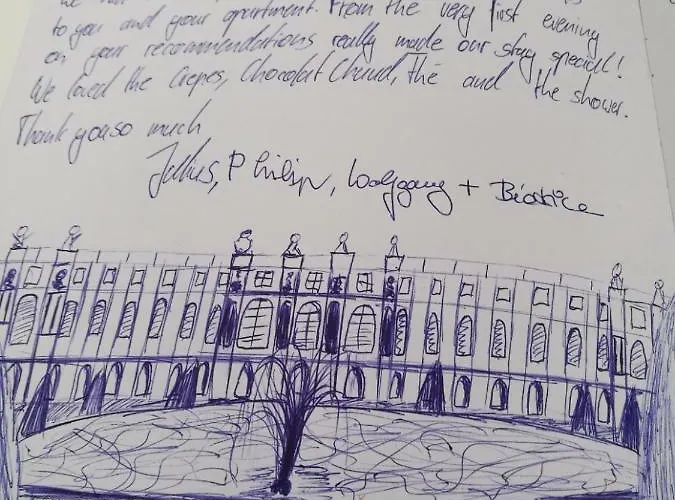 to you and your apartment. From the very first evening
on your recommendations really made our stay special!
We loved the Crêpes, Chocolat Chaud, thé and the shower.
Thank you so much
Julius, Philip, Wolfgang + Béatrice